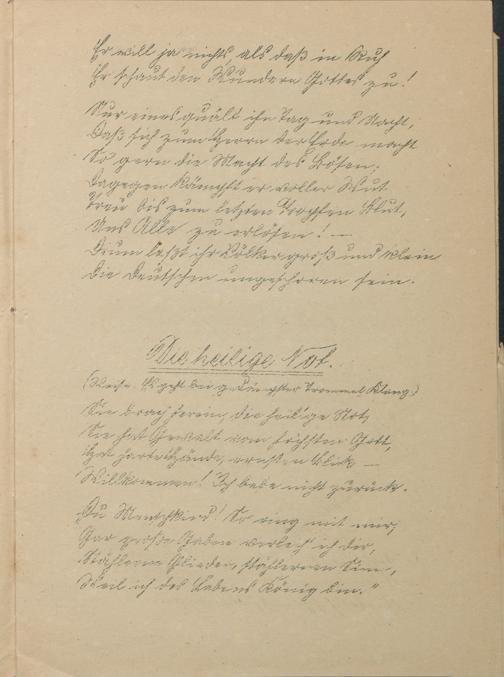 Er will ja nichts, als daß in Ruh
Er schaut den Wundern Gottes zu!
Nur eines quält ihn Tag und Nacht,
Daß sich zum Herrn der Erde macht
So gern die Macht des Bösen;
Dagegen kämpft er voller Wut
Treu bis zum letzten Tropfen Blut,
Uns Alle zu erlösen! —
Drum laßt ihr Völker groß und klein
Die Deutschen ungeschoren sein.
Die heilige Not.
(Weise: Es geht bei gedämpfter Trommel Klang.)
Sie brach herein, die heil'ge Not,
Sie hat Gewalt vom höchsten Gott,
Hat harte Hände, ernsten Blick —
Willkommen! Ich bebe nicht zurück.
„Du Menschkind! So ring mit mir,
Gar große Gaben verleih' ich dir,
Stählerne Glieder, stählernen Sinn,
Weil ich des Lebens König bin."